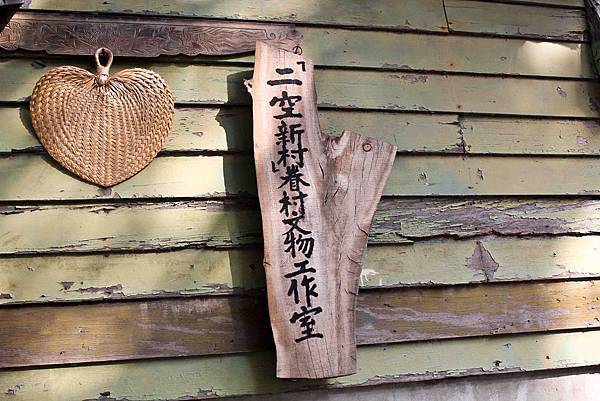 「二空新村」眷村文物工作室